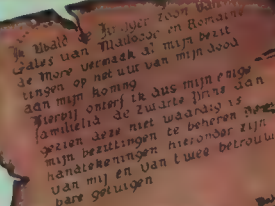 Ik Ubald de Jonger zoon van
Gales van Madocor en Romaine
de More vermaak al mijn bezit
tingen op het uur van mijn dood
aan mijn koning
Hierbij onterf ik dus mijn enige
familielid de zwarte Ijrine aan
gezien deze niet waardig is
mijn bezittingen te beheren
handtekeningen hieronder zijn
van mij en van twee betrouw
bare getuigen